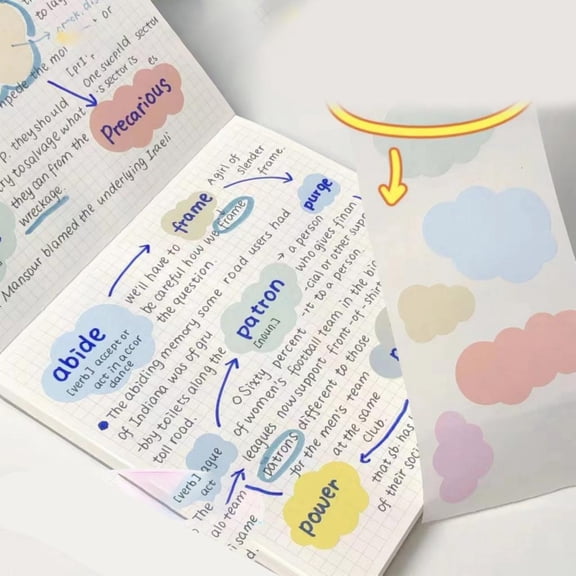 to lay
or
[pri'
One sucprld sector
's sector is
es
mpede the mo
Precarious
P. they should
ry to salvage what
they can from the
wreckage.
Mansour blamed the underlying Iraeli
A girl of
slender
frame.
frame
purge
we'll have to
be careful how we frame
the question.
abide
[verb] accept or
act in accor
dance
The abiding memory some road users had
of Indiana was of gru
bby toilets along the
toll road.
patron
[noun.]
a person
who gives finan
cial or other supp
rt to a person
Sixty percent
of women's football team in the big
leagues now support front-of-shirt
patrons different to those
for the men's team
at the same
club.
[verb] ague
act
The
alo team
i same
d.
power
that ob has
of their soci